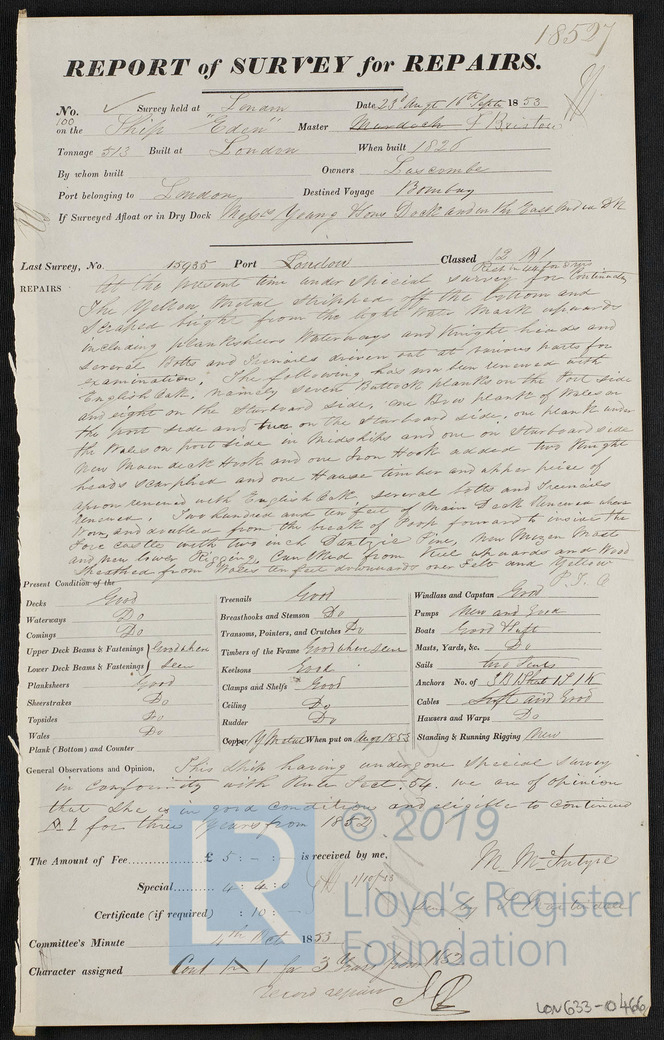 18527
REPORT of SURVEY for REPAIRS.
No. Survey held at London Date 23d Augt 16th Septr 1853
100
on the Ship "Eden" Master Murdoch J Bristow
Tonnage 513 Built at London When built 1826
By whom built Owners Luscombe
Port belonging to London Destined Voyage Bombay
If Surveyed Afloat or in Dry Dock Messrs Young Sons Dock and in the East India
Last Survey, No. 15935 Port London Classed 12 A1
REPAIRS At the present time under special survey for Continuation
The Yellow Metal stripped off the bottom and
scraped bright from the light Water Mark upwards
including planksheers Waterways and Knight heads and
several Bolts and Treenails driven out at various parts for
examination. The following has now been renewed with
English Oak, namely seven Buttock planks on the Port side
and eight on the Starboard side, one Bow plank of Wales on
the port side and two on the Starboard side, one plank under
the Wales on port side in Midships and one on Starboard side
New Main deck Hook and one Iron Hook added two Knight
heads scarphed and one Hawse timber and upper peice of
apron renewed with English Oak, several bolts and Treenails
renewed. Two hundred and ten feet of Main Deck renewed where
Worn, and doubled from the break of Poop forward to inside the
Fore castle with two inch Dantzic Pine, New Mizen Mast
and new lower Rigging, Caulked from Keel upwards and Wood
sheathed from Wales ten feet downwards over Felt and Yellow
P.T.O
Present Condition of the
Decks Good
Waterways Do
Comings Do
Upper Deck Beams & Fastenings Good where
Lower Deck Beams & Fastenings seen
Planksheers Good
Sheerstrakes Do
Topsides Do
Wales Do
Plank (Bottom) and Counter
Treenails Good
Breasthooks and Stemson Do
Transoms, Pointers, and Crutches Do
Timbers of the Frame Good where seen
Keelsons Good
Clamps and Shelfs Good
Ceiling Do
Rudder Do
Copper Y Metal When put on Augt 1853
Windlass and Capstan Good
Pumps New and Good
Boats Good
Masts, Yards, &c. Do
Sails two
Anchors No. of 3 B 1 S
Cables and Good
Hawsers and Warps Do
Standing & Running Rigging New
General Observations and Opinion, This Ship having undergone Special Survey
in Conformity with Rule Sect. 54. we are of opinion
that she is in good condition and eligible to continued
A 1 for three Years from 1852
The Amount of Fee £ 5 : - : - is received by me,
Special 4 : 4 : 0 1/10/53
Certificate (if required) : 10 : M. McIntyre
Committee's Minute 4th Oct 1853
Character assigned Cont A 1 for 3 Years from 1852
record repairs
LON633-0466
© 2019
Lloyd's Register
Foundation
LR